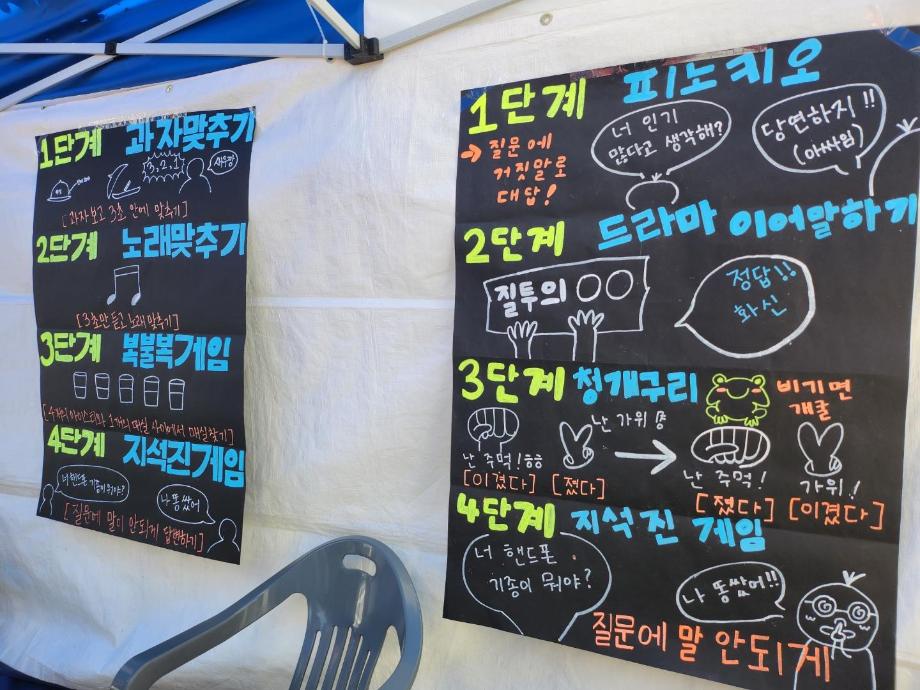 1단계 과자맞추기
3, 2, 1
새우깡
[과자보고 3초 안에 맞추기]
2단계 노래맞추기
[3초만 듣고 노래 맞추기]
3단계 복불복게임
[4개의 아이스티와 1개의 매실 사이에서 매실찾기]
4단계 지석진게임
너 핸드폰 기종이 뭐야?
나 똥쌌어
[질문에 말이 안되게 답변하기]
1단계 피노키오
→ 질문에
거짓말로
대답!
너 인기
많다고 생각해?
당연하지!!
(아싸임)
2단계 드라마 이어말하기
질투의 ○○
정답!!
화신
3단계 청개구리
비기면
개굴
난 가위!
난 주먹!ㅎㅎ
난 주먹!
가위!
[이겼다] [졌다]
[졌다] [이겼다]
4단계 지석진 게임
너 핸드폰
기종이 뭐야?
나 똥쌌어!!
질문에 말 안되게